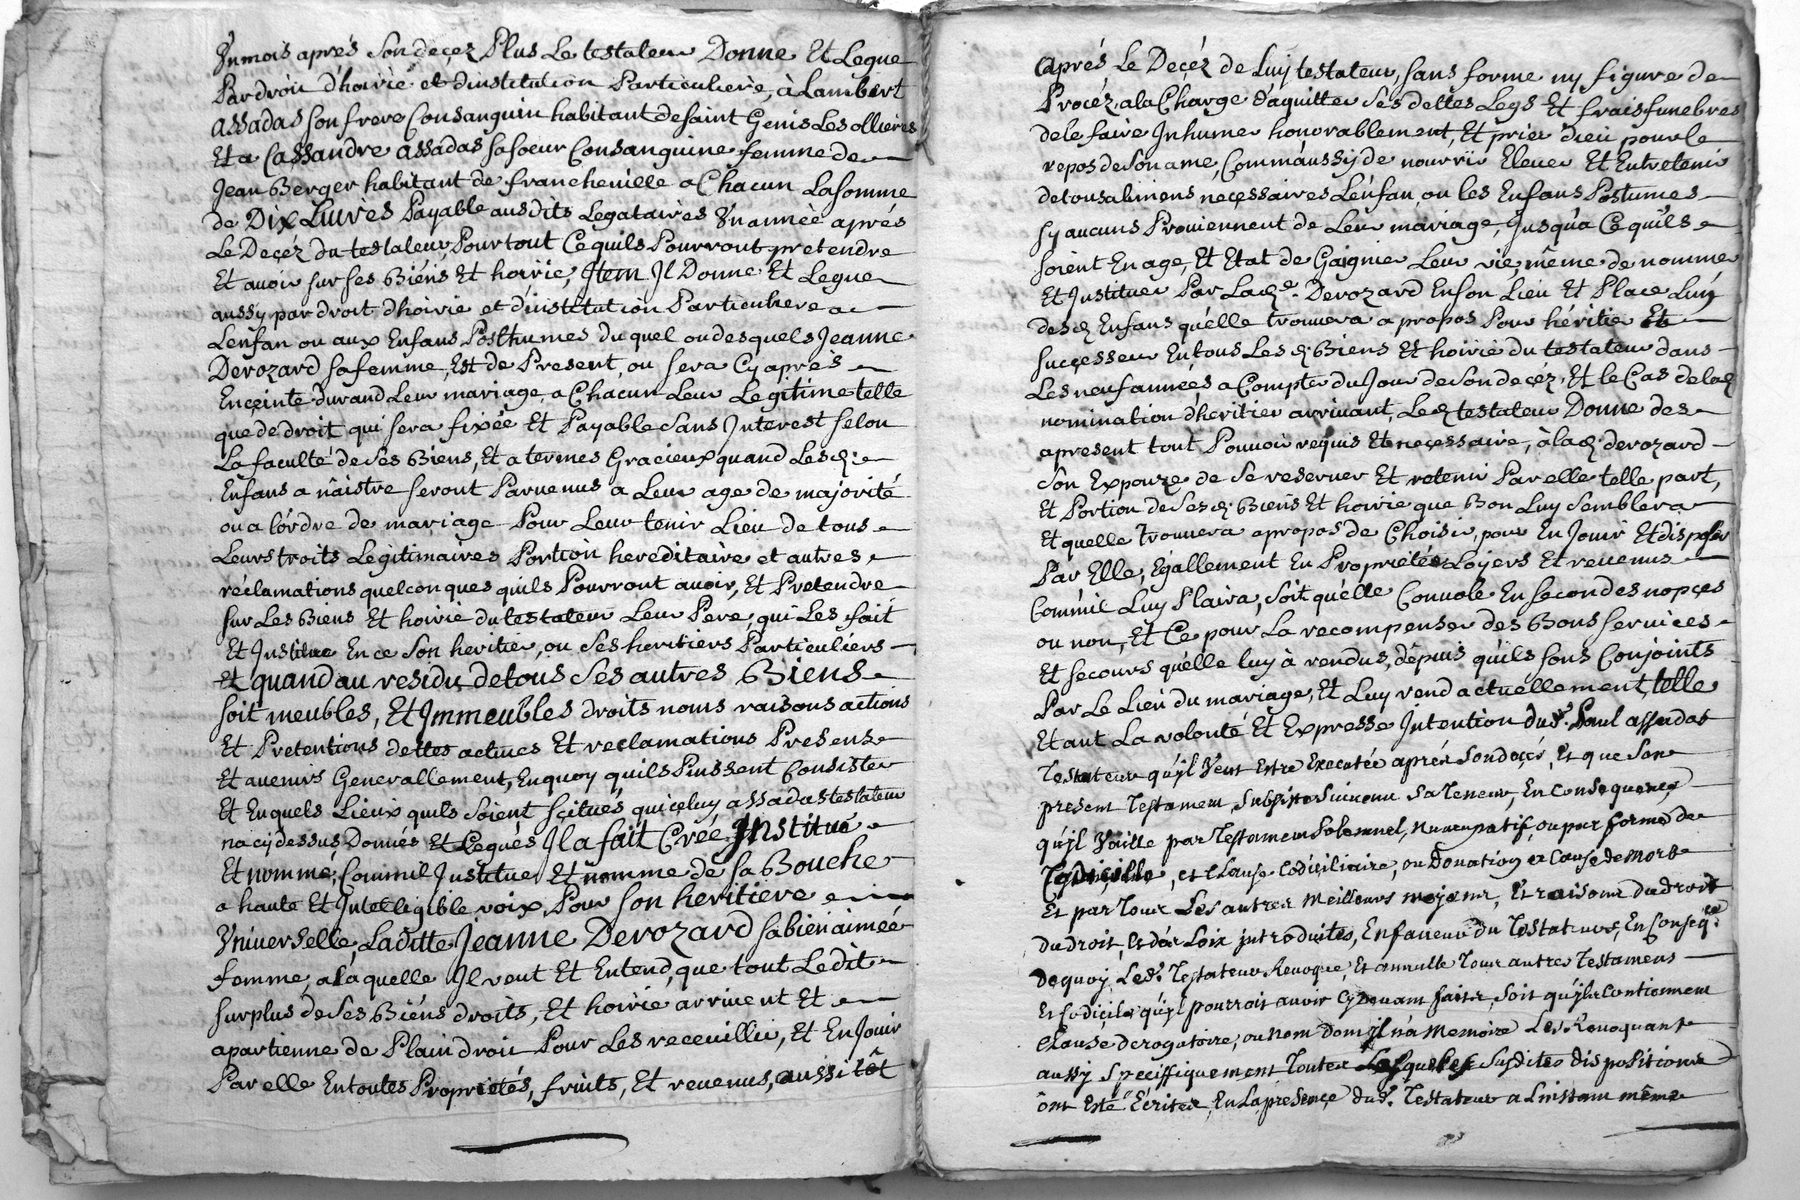 Un mois aprés Son deçez Plus Le testateur Donne Et Legue
Par droit d'hoirie et d'institution Particuliere, à Lambert
Assadas Son frere Consanguin habitant de Saint Genis Les ollieres
Et a Cassandre assadas Sa Soeur Consanguine femme de
Jean Berger habitant de francheville a Chacun La Somme
de Dix Livres Payable ausdits Legataires Un année aprés
Le Deçéz du testateur, Pour tout Ce quils Pourront pretendre
Et avoir sur ses Biéns Et hoirie, Item Il Donne Et Legue
aussy par droit d'hoirie et d'institution Particuliere a
Lenfan ou aux Enfans Posthumes du quel ou desquels Jeanne
Derozard sa femme, Est de Present, ou sera Cy aprés
Enceinte durand Leur mariage, a Chacun Leur Legitime telle
que de droit qui sera fixée Et Payable Sans Interest selon
La faculté de Ses Biens, Et a termes Gracieux quand Lesd.
Enfans a naistre seront Parvenus a Leur age de majorité
ou a l'órdre de mariage Pour Leur tenir Lieu de tous
Leurs troits Legitimaires Portion hereditaire et autres
réclamations quelconques quils Pourront avoir, Et Pretendre
sur Les Biens Et hoirie du testateur Leur Pere, qui Les fait
Et Institue En ce Son heritier, ou Ses heritiers Particuliérs
Et quand au residu de tous Ses autres Biens
soit meubles, Et Immeubles droits noms raisons actions
Et Pretentions dettes actives Et reclamations Presens
Et avenirs Generallement, En quoy quils Puissent Consister
Et En quels Lieux quils Soient scitués qu'iceluy assadas testateur
na cy dessus Donnés Et Legués Il a fait Créé Institué
Et nommé, Comm'il Institue Et nomme de sa Bouche
a haute Et Intelligible voix, Pour Son heritiere
Universelle, Laditte Jeanne Derozard sa bien aimée
femme, a laquelle Il veut Et Entend, que tout Ledit
surplus de Ses Biéns droits, Et hoirie arrivent Et
apartienne de Plain droit Pour Les receuillir, Et En Jouir
Par elle En toutes Proprietés, fruits, Et revenus, aussitôt
aprés Le Deçéz de Luy testateur, sans forme ny figure de
Procéz, a la Charge d'aquitter Ses dettes Legs Et frais funebres
de le faire Inhumer honorablement, Et prier dieu pour le
repos de Son ame, Comm'aussy de nourrir Elever Et Entretenir
de tous alimens neçessaires Lénfan ou les Enfans Postumes
sy aucuns Proviennent de Leur mariage, Jusqu'a Ce quils
soient En age, Et Etat de Gaignier Leur vie, même de nommer
Et Instituer Par Lad.e Derozard En Son Lieu Et Place Luy
desd. Enfans qu'élle trouvera a propos Pour héritier Et
sucçesseur En tous Lesd. Biens Et hoirie du testateur dans
Les neuf années a Compter du Jour de Son deçéz, Et le Cas de lad.
nomination d'heritier arrivant, Led. testateur Donne des
apresent tout Pouvoir requis Et neçessaire, à lad. derozard
Son Expouze de Se reserver Et retenir Par elle telle part,
Et Portion de Sesd. Biens Et hoirie que Bon Luy Semblera
Et quelle trouvera a propos de Choisir, pour En Jouir Et disposer
Par Elle, Egallement En Proprietés Loyers Et revenus
Comm'il Luy Plaira, Soit qu'élle Convole En secondes nopçes
ou non, Et Ce pour La recompenser des Bons services
Et secours qu'elle luy à rendus, depuis quils sons Conjoints
Par Le Lien du mariage, Et Luy rend actuéllement, telle
Etant La volonté Et Expresse Intention dud.t Paul assadas
Testateur qu'jl veut Estre Executée aprés Son deçés, Et que Son
present Testament Subsiste Suivant Sa Teneur, En Consequence
qu'jl Vaille par Testament Solemnel, Nuncupatif, ou par forme de
Codicille, et Clause Codicilliaire, ou Donation a Cause de Mort
Et par Tous Les autres Meilleurs moyens, Et raisons du droit
du droit, Et des Loix jntroduites, En faveur du Testateur, En Conseq.ce
de quoy, Led.t Testateur Revoque, Et annulle Tous autres Testamens
Et Codiciles qu'jl pourroit avoir Cy devant faits, Soit qu'jls Contiennent
Clause derogatoire, ou non dont jl n'a Memoire Les Revoquant
aussy Speciffiquement Toutes Lesquelles Susdites dispositions
ônt Esté Ecrites, En La presençe dud.t Testateur a L'instant même